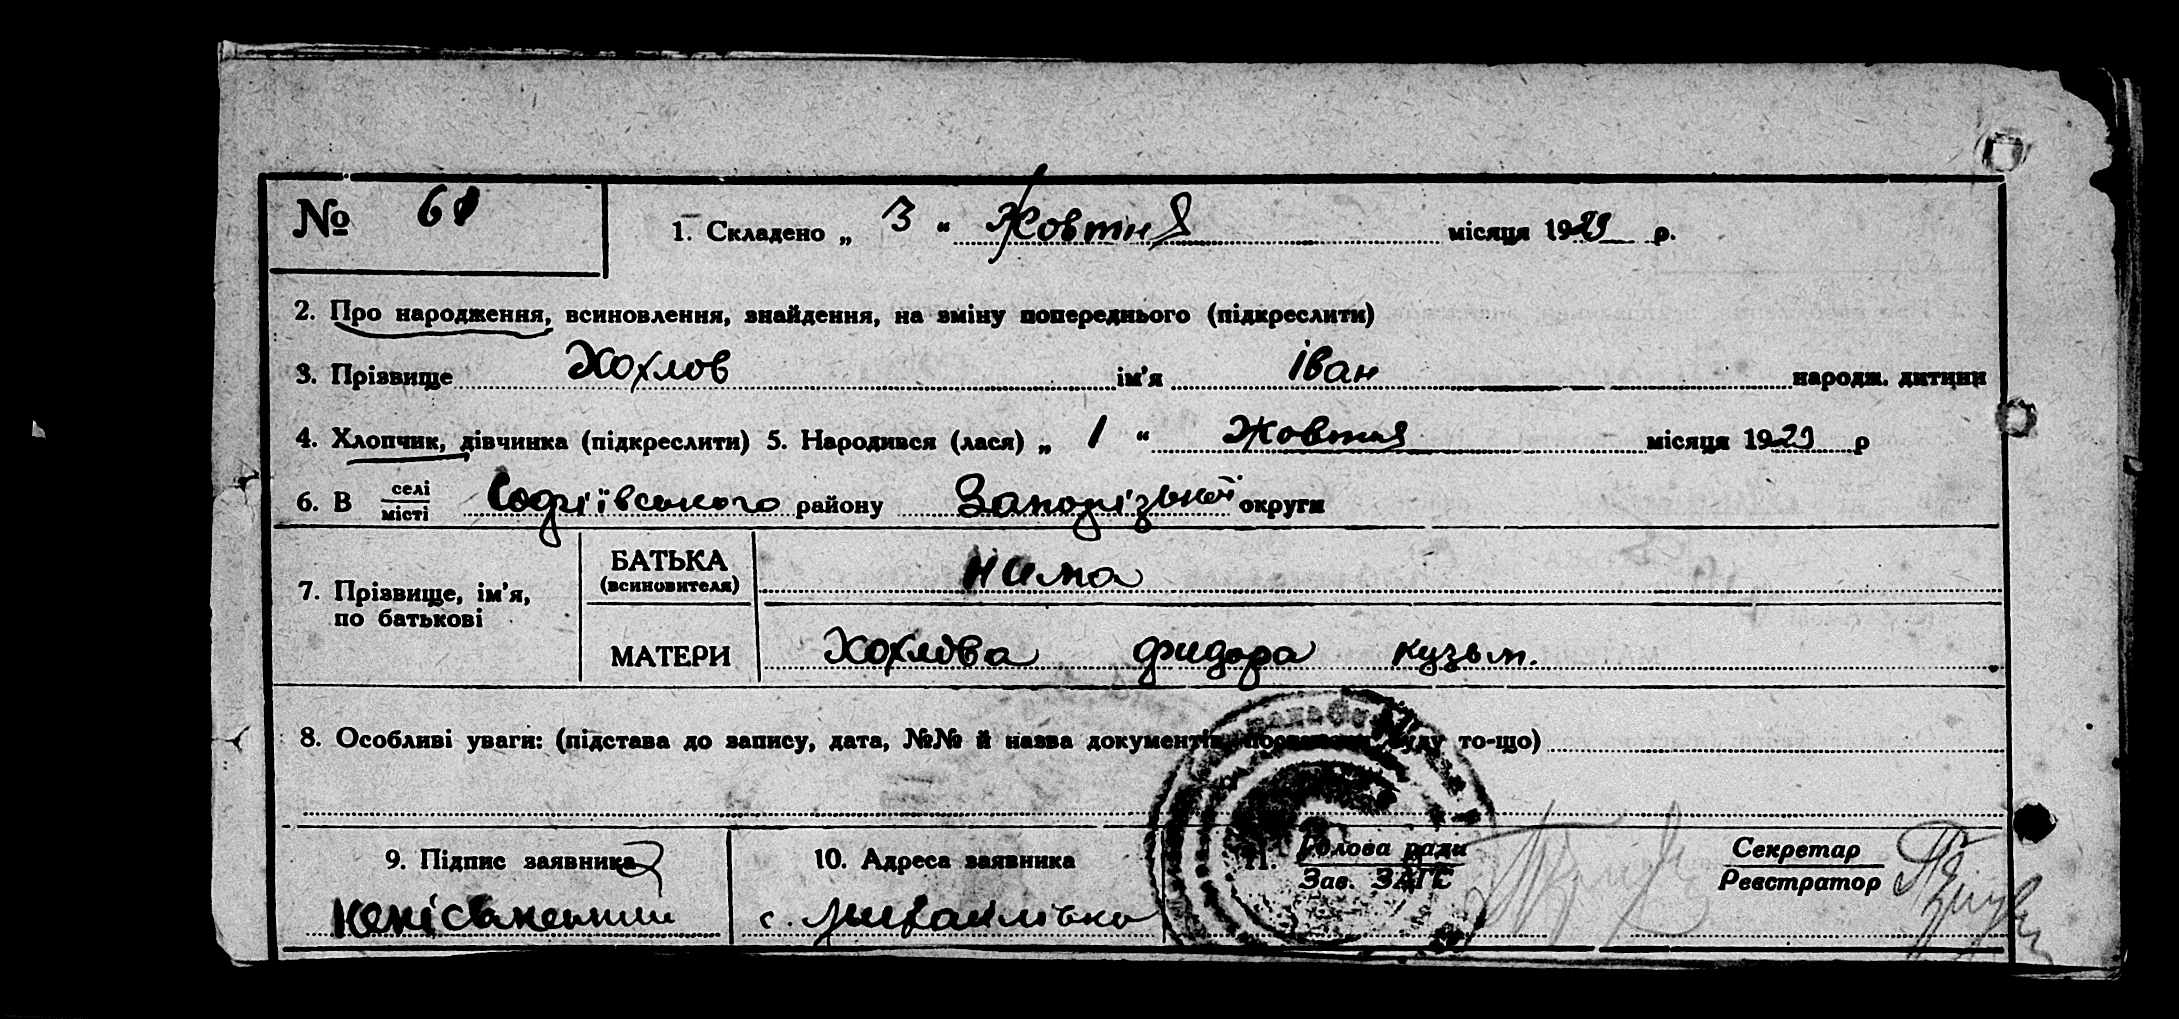 № 61 1. Складено „ 3 “ Жовтня місяця 1929 р.
2. Про народження, всиновлення, знайдення, на зміну попереднього (підкреслити)
3. Прізвище Хохлов ім’я Іван народж. дитини
4. Хлопчик, дівчинка (підкреслити) 5. Народився (лася) „ 1 “ Жовтня місяця 1929 р
6. В селі місті Софіївського району Запорізької округи
7. Прізвище, ім’я, по батькові
БАТЬКА (всиновителя) нима
МАТЕРИ Хохлова Фидора Кузьм.
8. Особливі уваги: (підстава до запису, дата, №№ й назва документів, буду то-що)
9. Підпис заявника 10. Адреса заявника 11. Голова ради Зав. ЗАГС Секретар Реєстратор
неписьменний с. Михайлівка